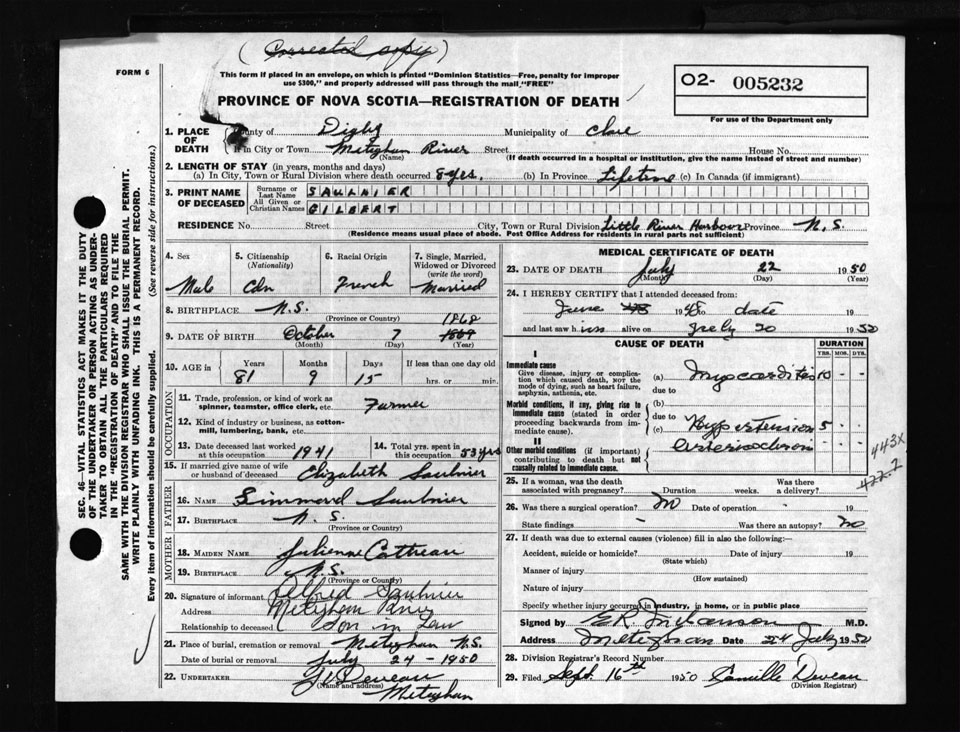 (Corrected copy)
FORM 6
This form if placed in an envelope, on which is printed "Dominion Statistics—Free, penalty for improper
use $300," and properly addressed will pass through the mail "FREE"
PROVINCE OF NOVA SCOTIA—REGISTRATION OF DEATH
O2- 005232
For use of the Department only
SEC. 46—VITAL STATISTICS ACT MAKES IT THE DUTY
OF THE UNDERTAKER OR PERSON ACTING AS UNDER-
TAKER TO OBTAIN ALL THE PARTICULARS REQUIRED
IN THE "REGISTRATION OF DEATH" AND TO FILE THE
SAME WITH THE DIVISION REGISTRAR WHO SHALL ISSUE THE BURIAL PERMIT.
WRITE PLAINLY WITH UNFADING INK. THIS IS A PERMANENT RECORD.
Every item of information should be carefully supplied. (See reverse side for instructions.)
1. PLACE OF DEATH County of Digby Municipality of Clare
If in City or Town Meteghan River Street House No.
(Name) (If death occurred in a hospital or institution, give the name instead of street and number)
2. LENGTH OF STAY (in years, months and days)
(a) In City, Town or Rural Division where death occurred 8 yrs. (b) In Province Lifetime (c) In Canada (if immigrant)
3. PRINT NAME OF DECEASED Surname or Last Name SAULNIER
All Given or Christian Names GILBERT
RESIDENCE No. Street City, Town or Rural Division Little River Harbour Province N.S.
(Residence means usual place of abode. Post Office Address for residents in rural parts not sufficient)
4. Sex 5. Citizenship (Nationality) 6. Racial Origin 7. Single, Married, Widowed or Divorced (write the word)
Male Cdn French Married
8. BIRTHPLACE N.S.
(Province or Country)
9. DATE OF BIRTH October 7 1868 1869
(Month) (Day) (Year)
10. AGE in Years Months Days If less than one day old
81 9 15 hrs. or min.
OCCUPATION
11. Trade, profession, or kind of work as spinner, teamster, office clerk, etc. Farmer
12. Kind of industry or business, as cotton-mill, lumbering, bank, etc.
13. Date deceased last worked at this occupation 1941 14. Total yrs. spent in this occupation 53 yrs
15. If married give name of wife or husband of deceased Elizabeth Saulnier
FATHER
16. NAME Simmard Saulnier
17. BIRTHPLACE N.S.
(Province or Country)
MOTHER
18. MAIDEN NAME Julienne Cottreau
19. BIRTHPLACE N.S.
(Province or Country)
20. Signature of informant Alfred Saulnier
Address Meteghan River
Relationship to deceased Son in Law
21. Place of burial, cremation or removal Meteghan N.S.
Date of burial or removal July 24 - 1950
22. UNDERTAKER Deveau
(Name and address) Meteghan
MEDICAL CERTIFICATE OF DEATH
23. DATE OF DEATH July 22 1950
(Month) (Day) (Year)
24. I HEREBY CERTIFY that I attended deceased from:
June 1948 to date 19
and last saw him alive on July 20 1950
CAUSE OF DEATH DURATION
YRS. MOS. DYS.
I
Immediate cause
Give disease, injury or complication which caused death, NOR the mode of dying, such as heart failure, asphyxia, asthenia, etc.
(a) Myocarditis 10 - -
due to
Morbid conditions, if any, giving rise to immediate cause (stated in order proceeding backwards from immediate cause).
(b)
due to
(c) Hypertension 5 - -
II
Other morbid conditions (if important) contributing to death but not causally related to immediate cause.
443X
422.2
25. If a woman, was the death associated with pregnancy? Duration weeks. Was there a delivery?
26. Was there a surgical operation? No Date of operation - 19
State findings - Was there an autopsy? No
27. If death was due to external causes (violence) fill in also the following:—
Accident, suicide or homicide? Date of injury 19
(State which)
Manner of injury
(How sustained)
Nature of injury
Specify whether injury occurred in industry, in home, or in public place
Signed by M.D.
Address Meteghan Date 24 July 1950
28. Division Registrar's Record Number
29. Filed Sept. 16th 1950 Camille Deveau
(Division Registrar)